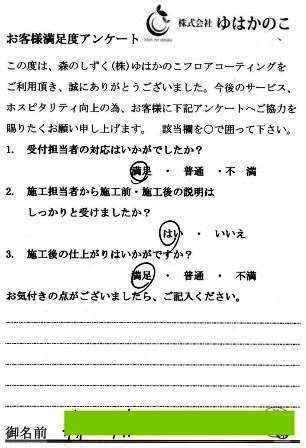 株式会社 ゆはかのこ
お客様満足度アンケート
この度は、森のしずく(株)ゆはかのこフロアコーティングを
ご利用頂き、誠にありがとうございました。今後のサービス、
ホスピタリティ向上の為、お客様に下記アンケートへご協力を
賜りたくお願い申し上げます。 該当欄を○で囲って下さい。
1. 受付担当者の対応はいかがでしたか?
満足 ・ 普通 ・ 不 満
2. 施工担当者から施工前・施工後の説明は
しっかりと受けましたか?
はい ・ いいえ
3. 施工後の仕上がりはいかがですか?
満足 ・ 普通 ・ 不満
お気付きの点がございましたら、ご記入ください。
御名前